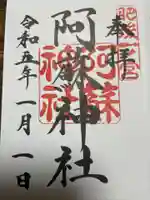 奉拝
肥後一宮
阿蘇神社
阿蘇神社
令和五年一月一日